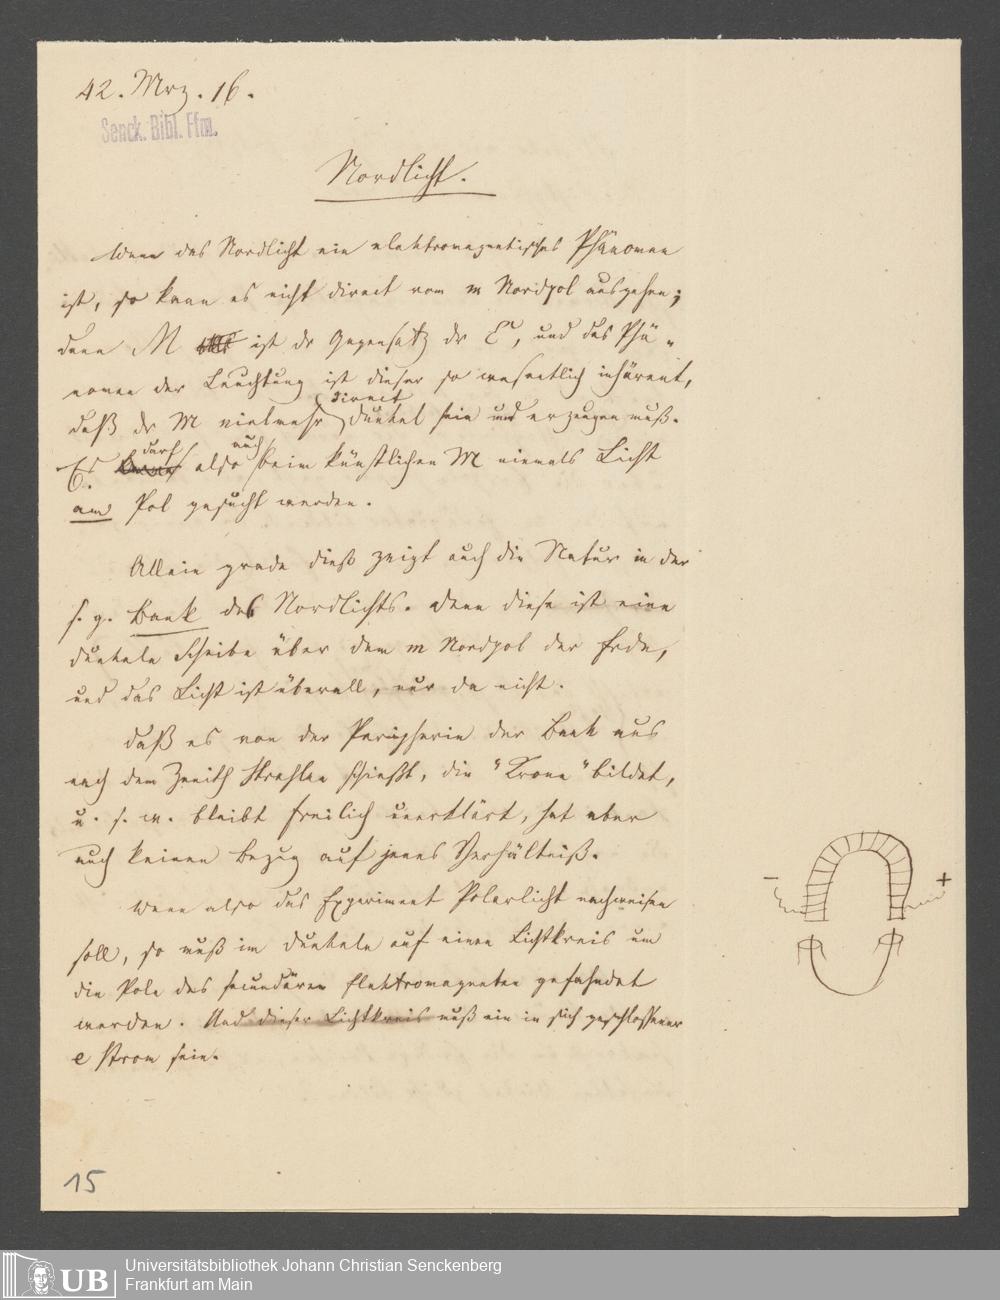 42. Mrz. 16.
Senck. Bibl. Ffm.
Nordlicht.
Wenn das Nordlicht ein elektromagnetisches Phänomen
ist, so kann es nicht direct vom m Nordpol ausgehen;
denn M ist dr Gegensatz dr E, und das Phä-
nomen der Leuchtung ist dieser so wesentlich inhärent,
daß dr M vielmehr direct dunkel sein und erzeugen muß.
Es darf also auch beim künstlichen M niemals Licht
am Pol gesucht werden.
Allein grade dieß zeigt auch die Natur in der
s. g. Bank des Nordlichts. denn diese ist eine
dunkele Scheibe über dem m Nordpol der Erde,
und das Licht ist überall, nur da nicht.
daß es von der Peripherie der Bank aus
nach dem Zenith Strahlen schießt, die "Krone" bildet,
u. s. w. bleibt freilich unerklärt, hat aber
auch keinen Bezug auf jenes Verhältniß.
Wenn also das Experiment Polarlicht nachweisen
soll, so muß im Dunkeln auf einen Lichtkreis um
die Pole des secundären Elektromagneten gefahndet
werden. Und dieser Lichtkreis muß ein in sich geschlossener
e Strom sein.
- +
15
UB
Universitätsbibliothek Johann Christian Senckenberg
Frankfurt am Main